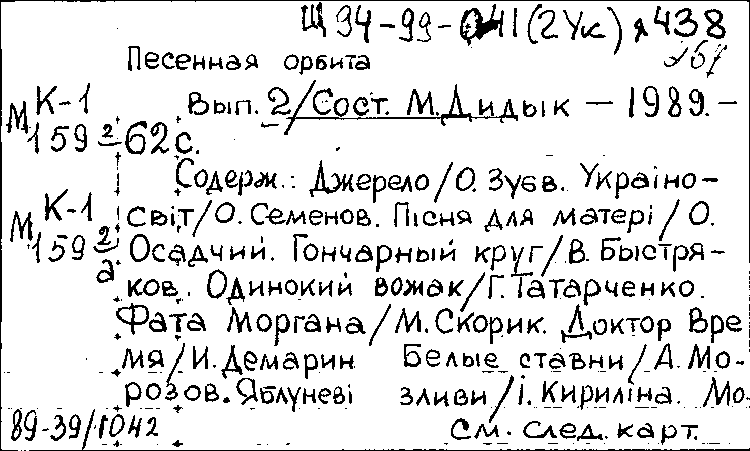 Щ 94-99-041(2Ук) я438
Песенная орбита
М К-1 159 2 Вып. 2/Сост. М.Дидык - 1989.-
62 с.
Содерж.: Джерело/О. Зуєв. Україно-
М К-1 159 2 а світ/О. Семенов. Пісня для матері/О.
Осадчий. Гончарный круг/В. Быстря-
ков. Одинокий вожак/Г. Татарченко.
Фата Моргана/М. Скорик. Доктор Вре
мя/И. Демарин Белые ставни/А. Мо-
розов. Яблуневі зливи/І. Кириліна. Мо.
89-39/1042 См. след. карт.